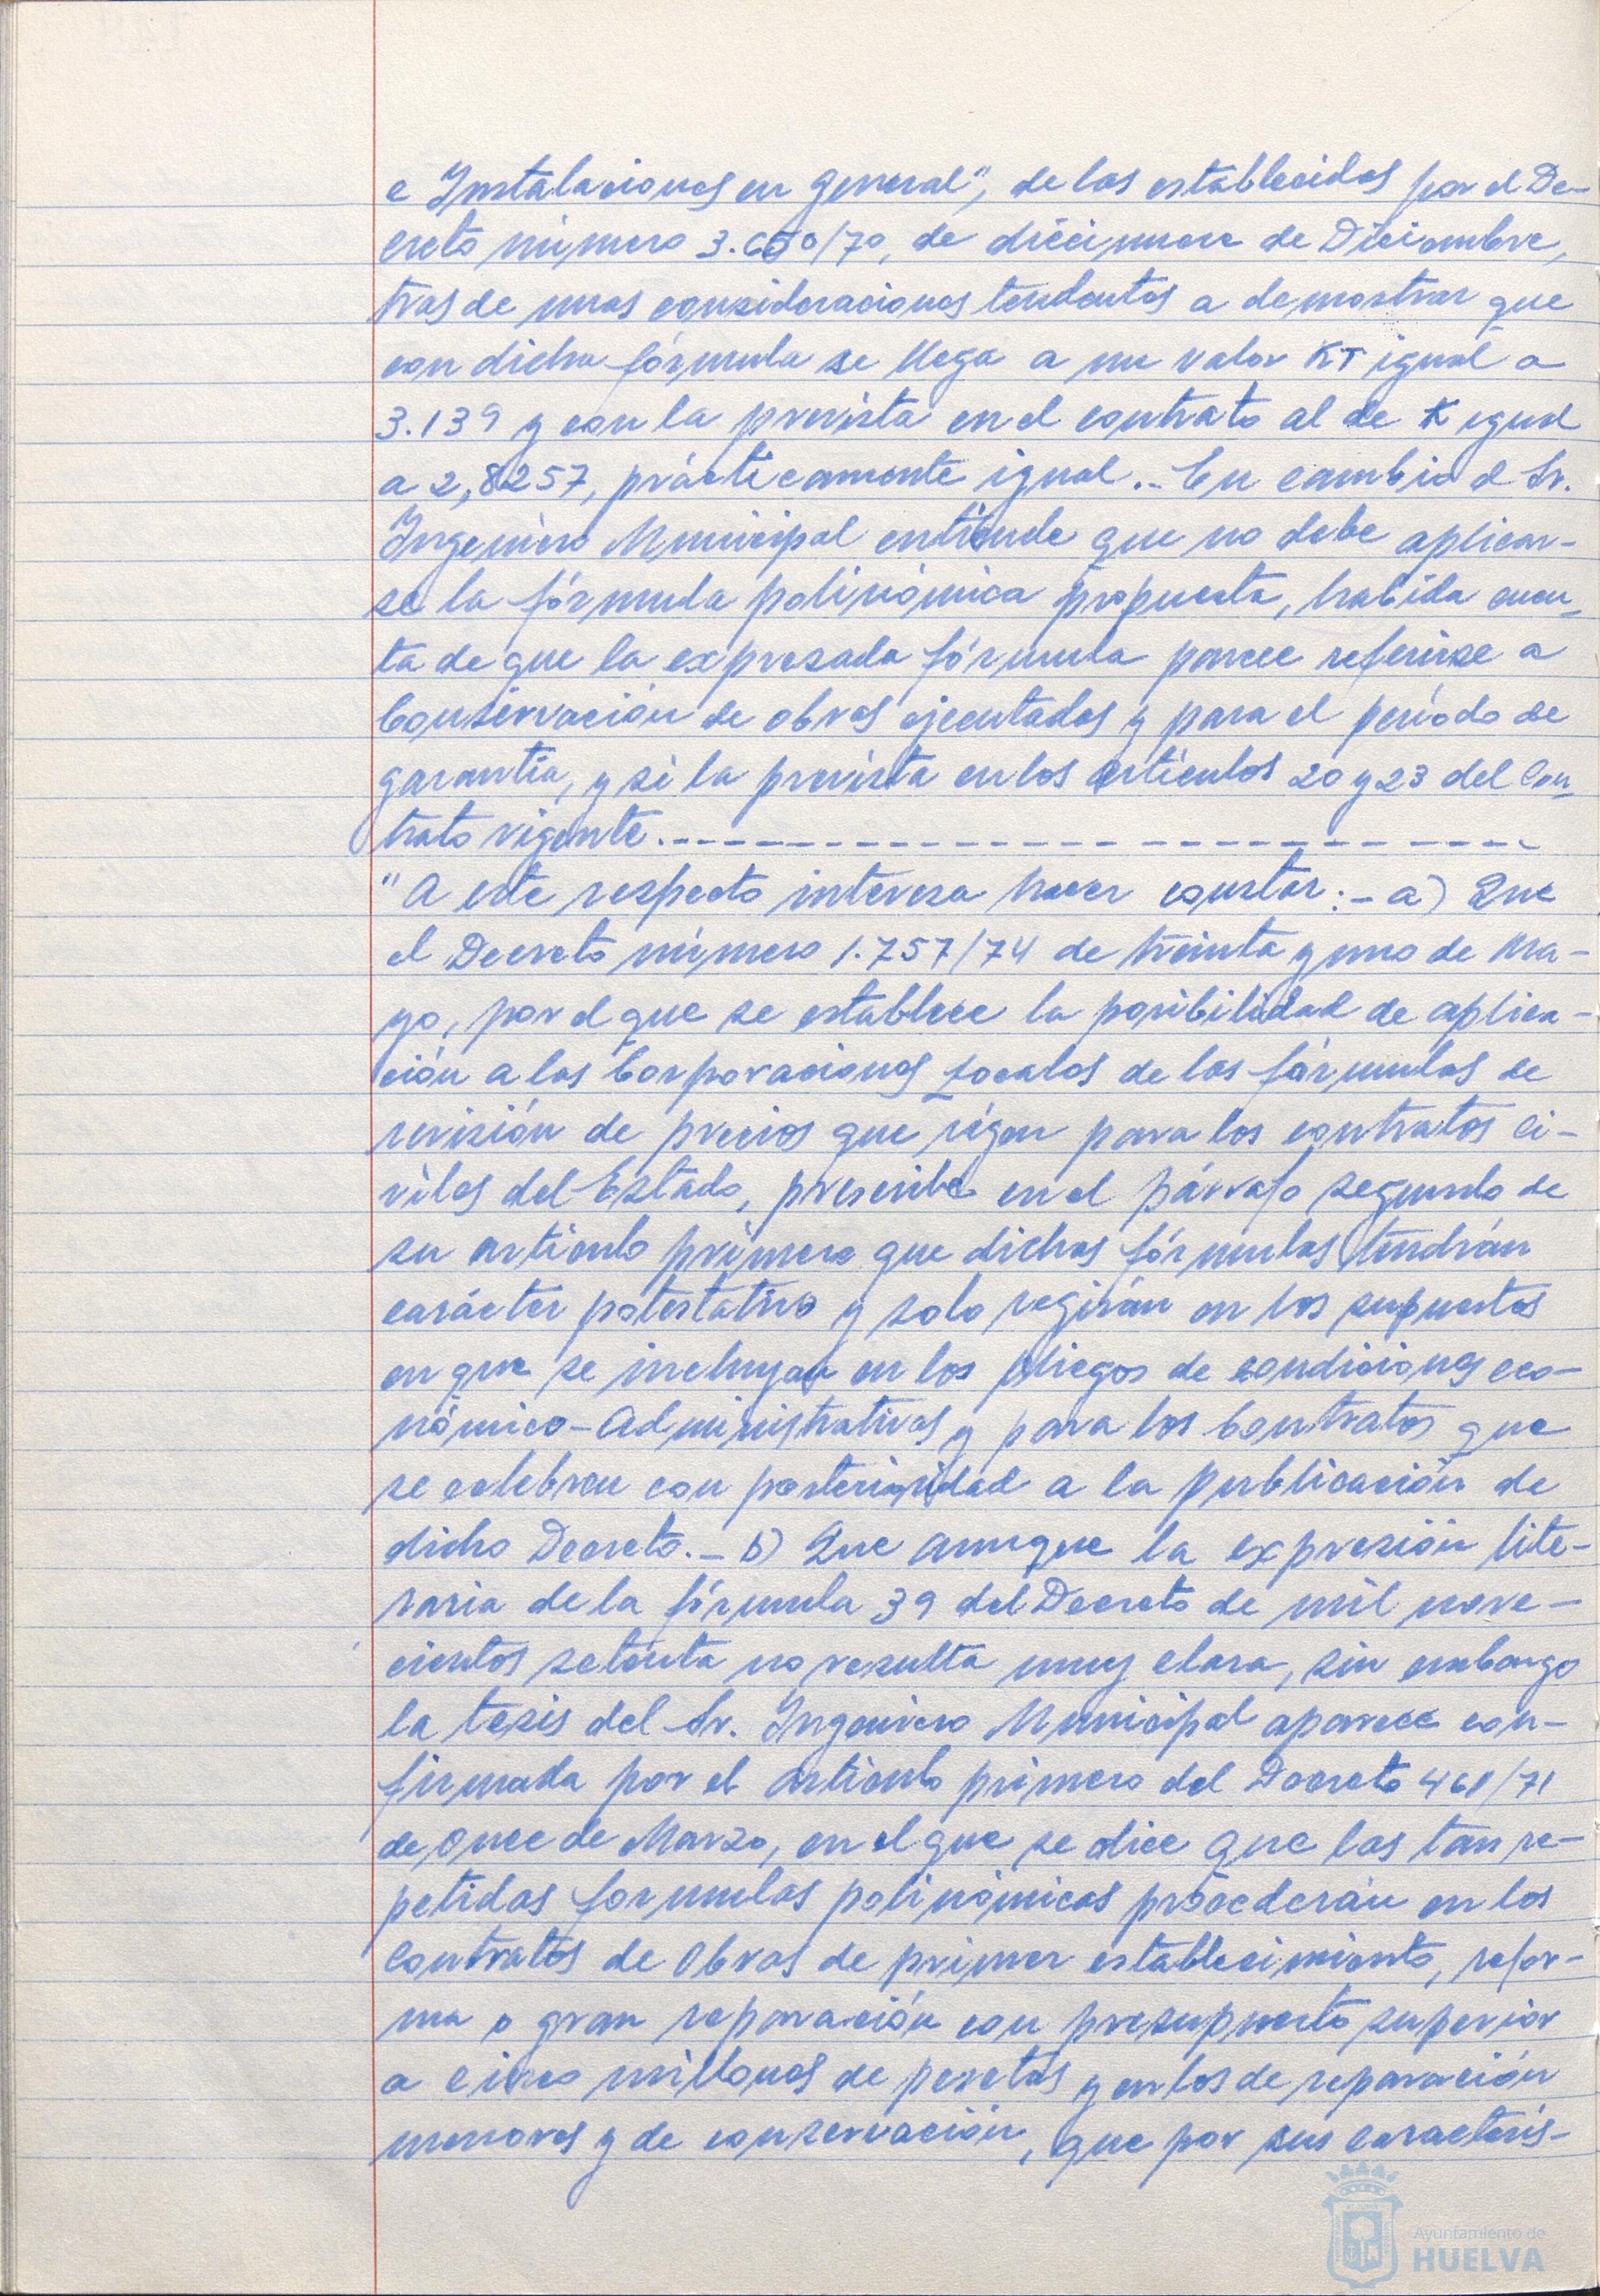 e Instalaciones en general", de las establecidas por el De-
creto número 3.650/70, de diecinueve de Diciembre,
tras de unas consideraciones tendentes a demostrar que
con dicha fórmula se llega a un valor KT igual a
3.139 y con la prevista en el contrato al de K igual
a 2,8257, prácticamente igual.- En cambio el Sr.
Ingeniero Municipal entiende que no debe aplicar-
se la fórmula polinómica propuesta, habida cuen-
ta de que la expresada fórmula parece referirse a
Conservación de obras ejecutadas y para el período de
garantía, y si la prevista en los artículos 20 y 23 del Con-
trato vigente.- - - - - - - - - - - - - - - - - - - - - - -
"A este respecto interesa hacer constar:- a) Que
el Decreto número 1.757/74 de treinta y uno de Ma-
yo, por el que se establece la posibilidad de aplica-
ción a las Corporaciones Locales de las fórmulas de
revisión de precios que rigen para los contratos ci-
viles del Estado, prescribe en el párrafo segundo de
su artículo primero que dichas fórmulas tendrán
carácter potestativo y solo regirán en los supuestos
en que se incluyan en los pliegos de condiciones eco-
nómico-Administrativas y para los Contratos que
se celebren con posterioridad a la publicación de
dicho Decreto.- b) Que aunque la expresión lite-
raria de la fórmula 39 del Decreto de mil nove-
cientos setenta no resulta muy clara, sin embargo
la tesis del Sr. Ingeniero Municipal aparece con-
firmada por el artículo primero del Decreto 461/71
de Once de Marzo, en el que se dice que las tan re-
petidas formulas polinómicas procederán en los
Contratos de Obras de primer establecimiento, refor-
ma o gran reparación con presupuesto superior
a cinco millones de pesetas y en los de reparación
menores y de conservación, que por sus caracterís-
Ayuntamiento de
HUELVA